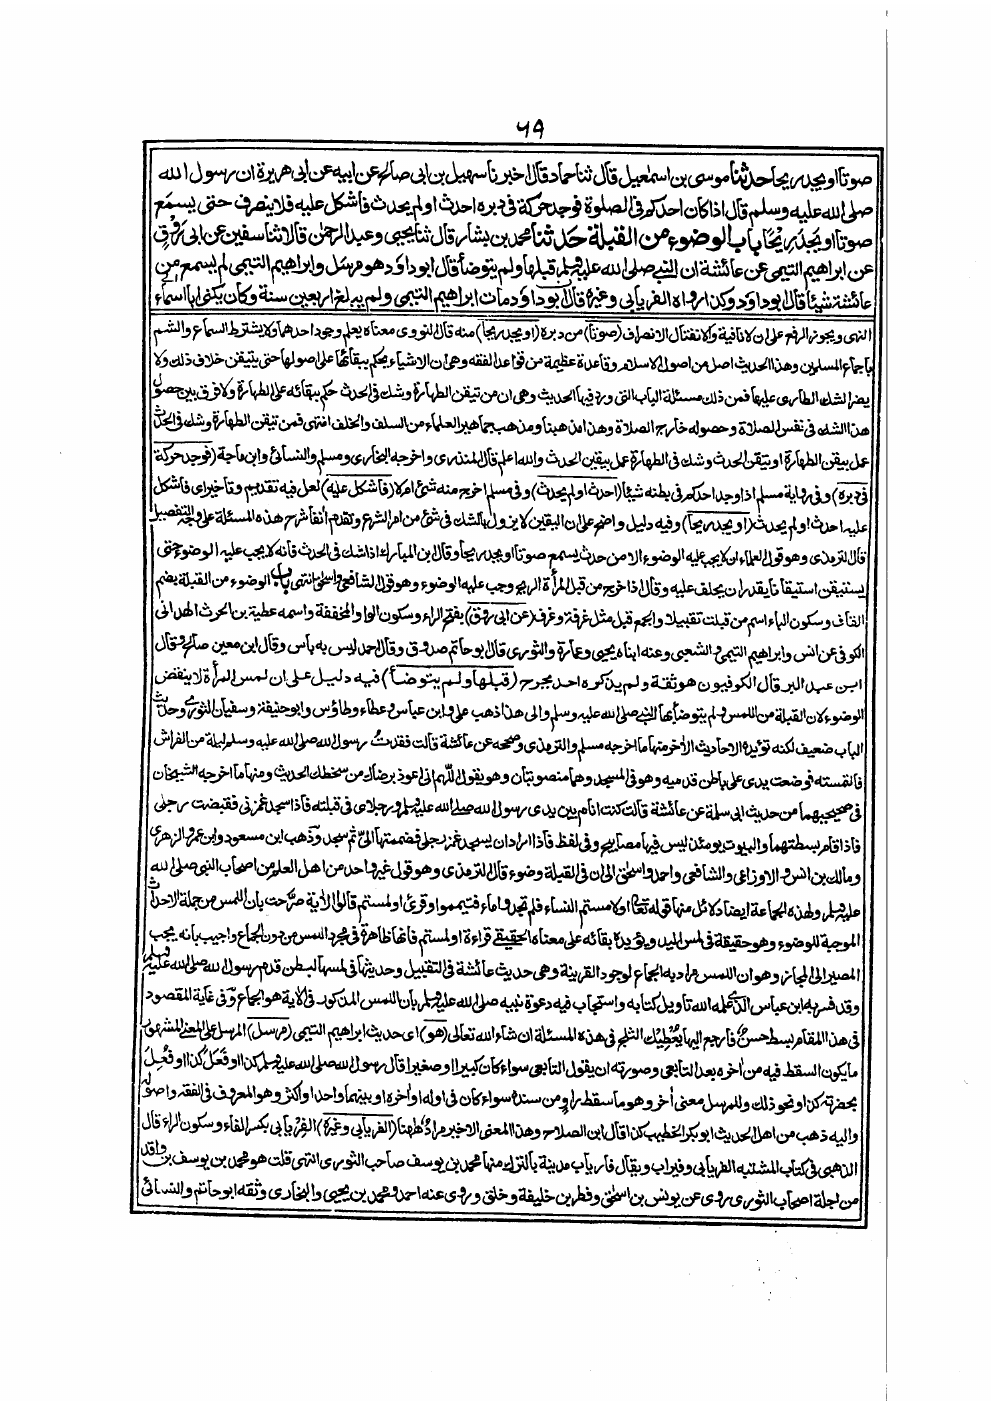 ٦٩
صوتا او يجد ريحا حدثنا موسى بن اسمعيل قال ثنا حماد قال اخبرنا سهيل بن ابى صالح عن ابيه عن ابى هريرة ان رسول الله
صلى الله عليه وسلم قال اذا كان احدكم فى الصلوة فوجد حركة فى دبره احدث او لم يحدث فاشكل عليه فلا ينصرف حتى يسمع
صوتا او يجد ريحا باب الوضوء من القبلة حدثنا محمد بن بشار قال ثنا يحيى وعبد الرحمن قالا ثنا سفين عن ابى روق
عن ابراهيم التيمى عن عائشة ان النبى صلى الله عليه وسلم قبلها ولم يتوضأ قال ابو داود هو مرسل وابراهيم التيمى لم يسمع من
عائشة شيئا قال ابو داود وكذا رواه الفريابى وغيره قال ابو داود مات ابراهيم التيمى ولم يبلغ اربعين سنة وكان يكنى ابا اسماء
النهى ويجوز الرفع على ان لا نافية والانفتال الانصراف (صوتا) من دبره (او يجد ريحا) منه قال النووى معناه يعلم وجود احدهما ولا يشترط السماع والشم
باجماع المسلمين وهذا الحديث اصل من اصول الاسلام وقاعدة عظيمة من قواعد الفقه وهى ان الاشياء يحكم ببقائها على اصولها حتى يتيقن خلاف ذلك ولا
يضر الشك الطارى عليها فمن ذلك مسئلة الباب التى ورد فيها الحديث وهى ان من تيقن الطهارة وشك فى الحدث حكم ببقائه على الطهارة ولا فرق بين حصول
هذا الشك فى نفس الصلاة وحصوله خارج الصلاة وهذا مذهبنا ومذهب جماهير العلماء من السلف والخلف انتهى فمن تيقن الطهارة وشك فى الحدث
عمل بيقن الطهارة او تيقن الحدث وشك فى الطهارة عمل بيقين الحدث والله اعلم قال المنذرى واخرجه البخارى ومسلم والنسائى وابن ماجة (فوجد حركة
فى دبره) وفى رواية مسلم اذا وجد احدكم فى بطنه شيئا (احدث او لم يحدث) وفى مسلم اخرج منه شئ ام لا (فاشكل عليه) لعل فيه تقديم وتاخير اى فاشكل
عليه احدث او لم يحدث (او يجد ريحا) وفيه دليل واضح على ان اليقين لا يزول بالشك فى شئ من امر الشرع وتقدم آنفا شرح هذه المسئلة على وجه التفصيل
قال الترمذى وهو قول العلماء ان لا يجب عليه الوضوء الا من حدث يسمع صوتا او يجد ريحا وقال ابن المبارك اذا شك فى الحدث فانه لا يجب عليه الوضوء حتى
يستيقن استيقانا يقدر ان يحلف عليه وقال اذا خرج من قبل المرأة الريح وجب عليها الوضوء وهو قول الشافعى واسحق انتهى باب الوضوء من القبلة بضم
القاف وسكون الباء اسم من قبلت تقبيلا والجمع قبل مثل غرفة وغرف (عن ابى روق) بفتح الراء وسكون الواو المخففة واسمه عطية بن الحرث الهمدانى
الكوفى عن انس وابراهيم التيمى والشعبى وعنه ابناه يحيى وعمارة والثورى قال ابو حاتم صدوق وقال احمد ليس به بأس وقال ابن معين صالح وقال
ابن عبد البر قال الكوفيون هو ثقة ولم يذكره احد بجرح (قبلها ولم يتوضأ) فيه دليل على ان لمس المرأة لا ينقض
الوضوء لان القبلة من اللمس ولم يتوضأ بها النبى صلى الله عليه وسلم والى هذا ذهب على وابن عباس وعطاء وطاؤس وابو حنيفة وسفيان الثورى وحديث
الباب ضعيف لكنه تؤيده الاحاديث الاخر منها ما اخرجه مسلم والترمذى وصححه عن عائشة قالت فقدت رسول الله صلى الله عليه وسلم ليلة من الفراش
فالتمسته فوضعت يدى على باطن قدميه وهو فى المسجد وهما منصوبتان وهو يقول اللهم انى اعوذ برضاك من سخطك الحديث ومنها ما اخرجه الشيخان
فى صحيحيهما من حديث ابى سلمة عن عائشة قالت كنت انام بين يدى رسول الله صلى الله عليه وسلم ورجلاى فى قبلته فاذا سجد غمزنى فقبضت رجلى
فاذا قام بسطتهما والبيوت يومئذ ليس فيها مصابيح وفى لفظ فاذا اراد ان يسجد غمز رجلى فضممتها الىّ ثم سجد وذهب ابن مسعود وابن عمر والزهرى
ومالك بن انس والاوزاعى والشافعى واحمد واسحق الى ان فى القبلة وضوء قال الترمذى وهو قول غير واحد من اهل العلم من اصحاب النبى صلى الله
عليه وسلم ولهذه الجماعة ايضا دلائل منها قوله تعالى او لامستم النساء فلم تجدوا ماء فتيمموا وقرئ او لمستم قالوا الآية صرحت بان اللمس من جملة الاحداث
الموجبة للوضوء وهو حقيقة فى لمس اليد ويؤيده بقائه على معناه الحقيقى قراءة او لمستم فانها ظاهرة فى مجرد اللمس من دون الجماع واجيب بانه يجب
المصير الى المجاز وهو ان اللمس مراد به الجماع لوجود القرينة وهى حديث عائشة فى التقبيل وحديثها فى لمسها لبطن قدم رسول الله صلى الله عليه وسلم
وقد فسر به ابن عباس الذى علمه الله تاويل كتابه واستجاب فيه دعوة نبيه صلى الله عليه وسلم بان اللمس المذكور فى الآية هو الجماع وفى غاية المقصود
فى هذا المقام بسط حسن فارجع اليها يعطيك الثلج فى هذه المسئلة ان شاء الله تعالى (هو) اى حديث ابراهيم التيمى (مرسل) المرسل على المعنى المشهور
ما يكون السقط فيه من آخره بعد التابعى وصورته ان يقول التابعى سواء كان كبيرا او صغيرا قال رسول الله صلى الله عليه وسلم كذا او فعل كذا او فعل
بحضرته كذا ونحو ذلك وللمرسل معنى آخر وهو ما سقط راو من سنده سواء كان فى اوله او آخره او بينهما واحد او اكثر وهو المعروف فى الفقه واصوله
واليه ذهب من اهل الحديث ابو بكر الخطيب كذا قال ابن الصلاح وهذا المعنى الاخير مراد ههنا (الفريابى وغيره) الفريابى بكسر الفاء وسكون الراء قال
الذهبى فى كتاب المشتبه الفريابى وفيراب ويقال فارياب مدينة بالترك منها محمد بن يوسف صاحب الثورى انتهى قلت هو محمد بن يوسف بن واقد
من اجلة اصحاب الثورى روى عن يونس بن اسحق وفطر بن خليفة وخلق وروى عنه احمد ومحمد بن يحيى والبخارى وثقه ابو حاتم والنسائى